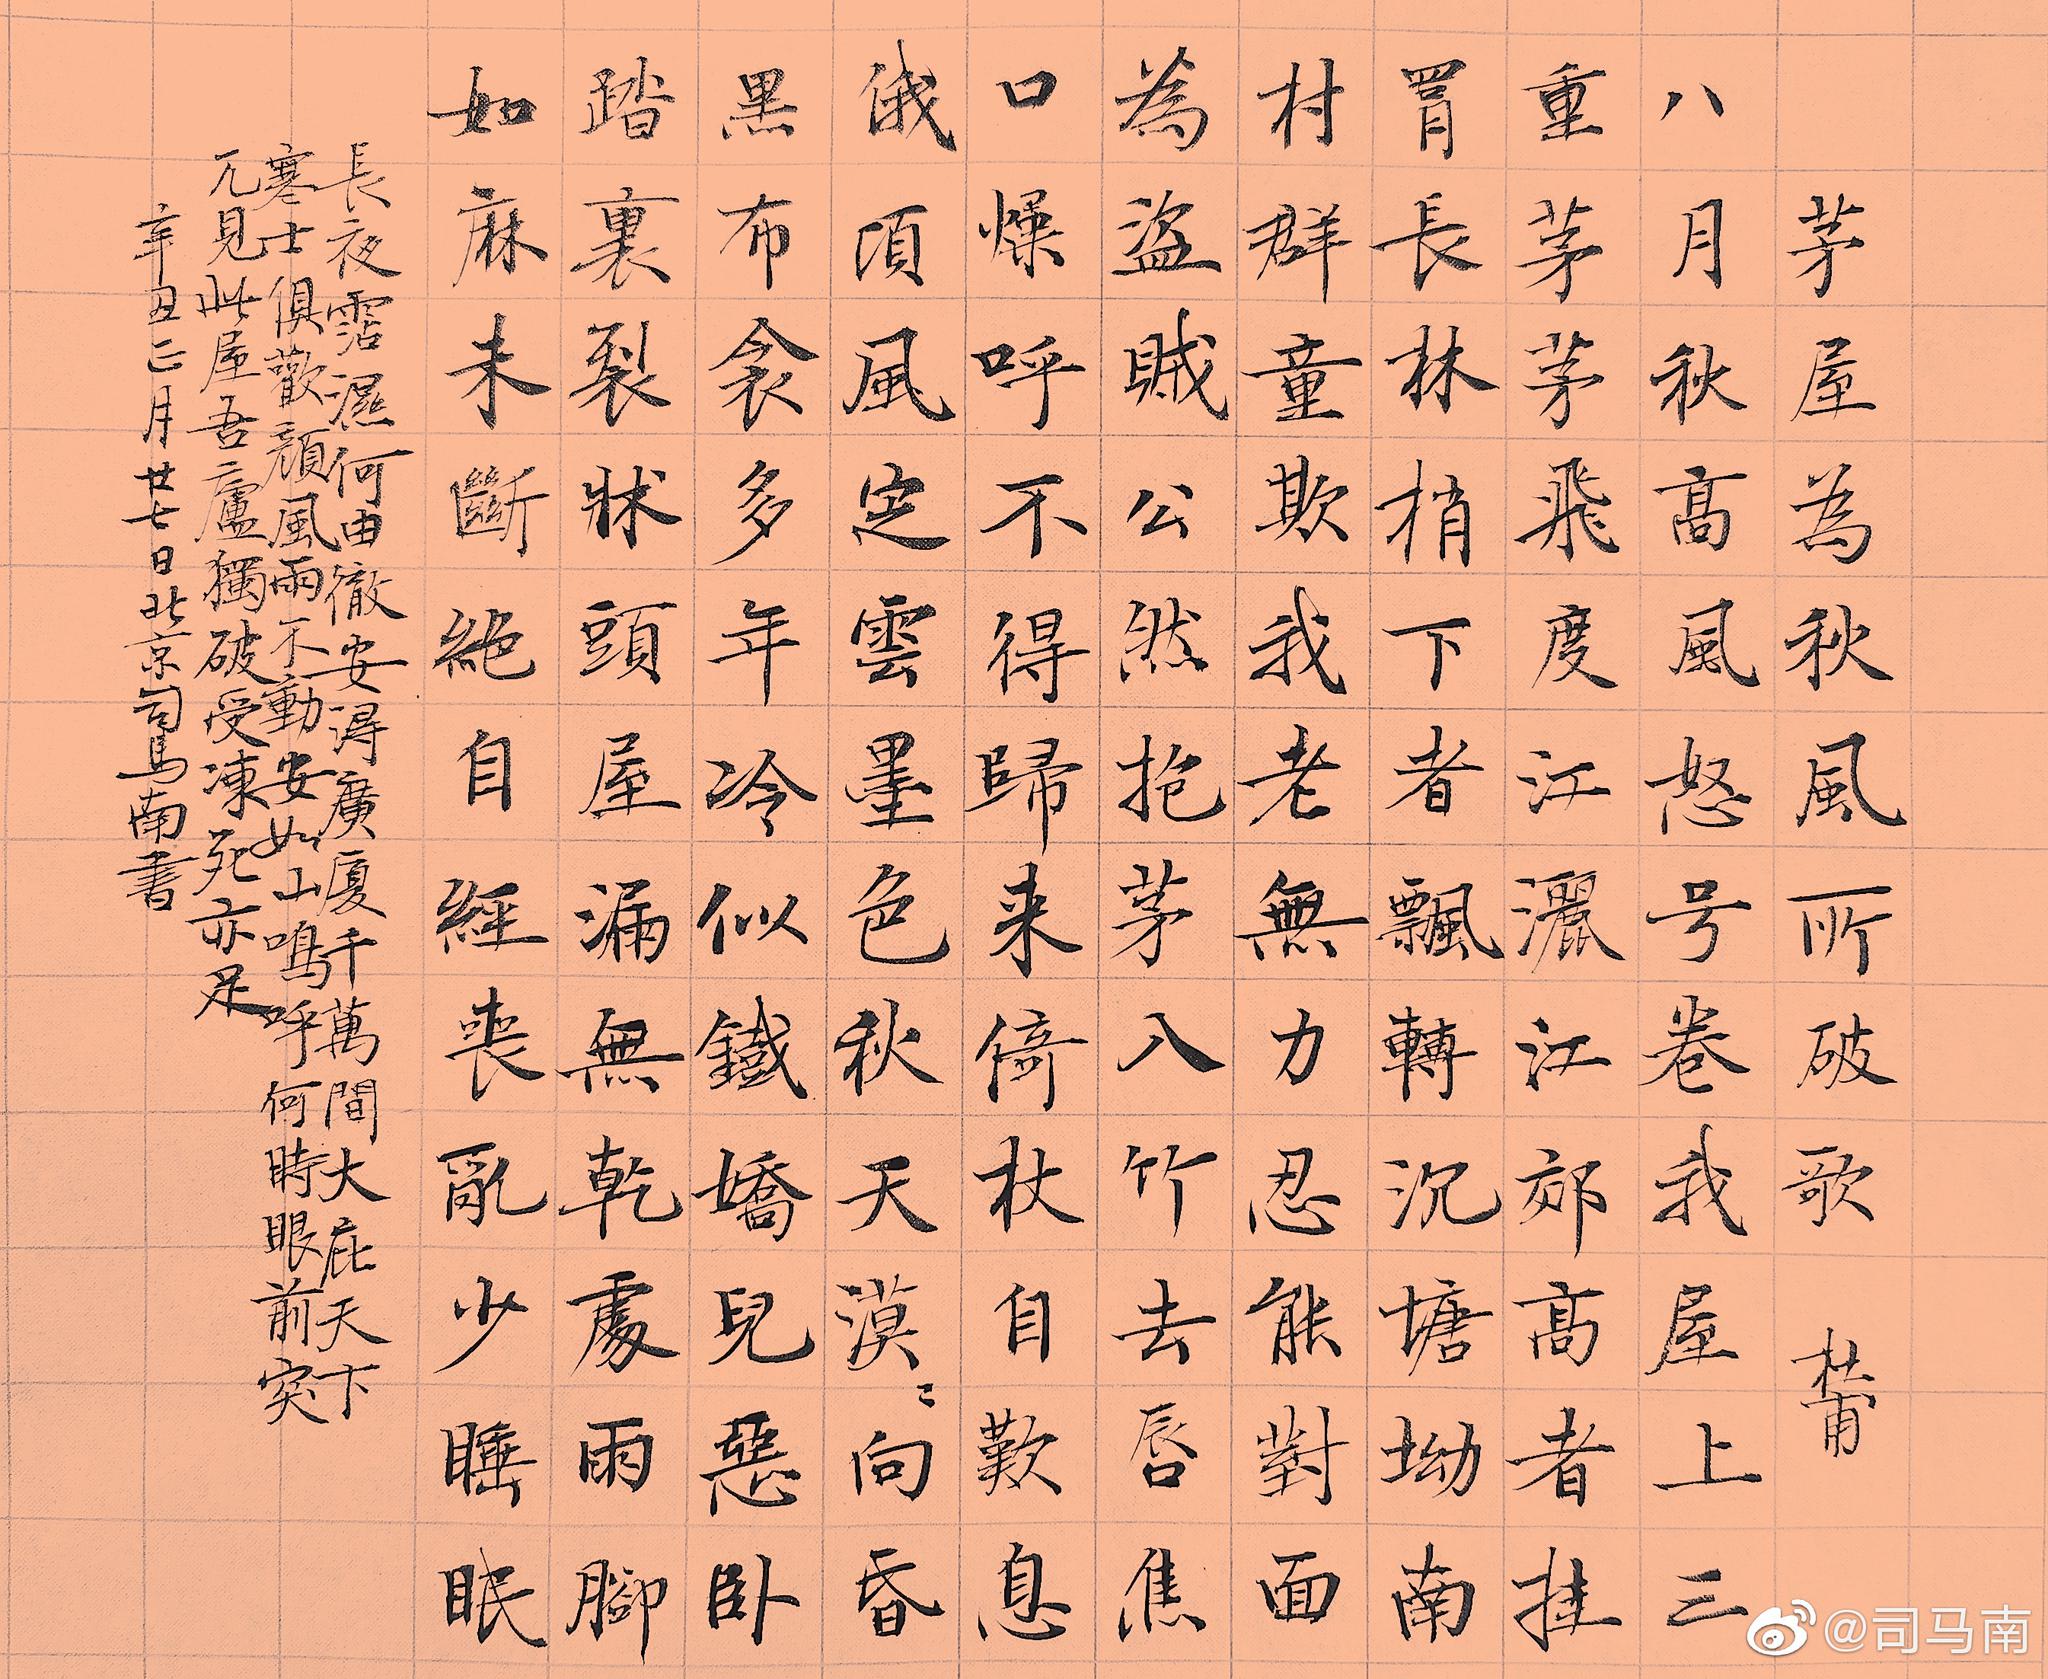 茅屋為秋風所破歌 杜甫
八月秋高風怒号卷我屋上三
重茅茅飛度江灑江郊高者挂
罥長林梢下者飄轉沉塘坳南
村群童欺我老無力忍能對面
為盜賊公然抱茅入竹去唇焦
口燥呼不得歸来倚杖自歎息
俄頃風定雲墨色秋天漠〻向昏
黑布衾多年冷似鐵嬌兒惡卧
踏裏裂牀頭屋漏無乾處雨腳
如麻未斷絶自經喪亂少睡眠
長夜霑濕何由徹安得廣廈千萬間大庇天下
寒士俱歡顏風雨不動安如山嗚呼何時眼前突
兀見此屋吾廬獨破受凍死亦足
辛丑二月廿七日北京司馬南書
@司马南